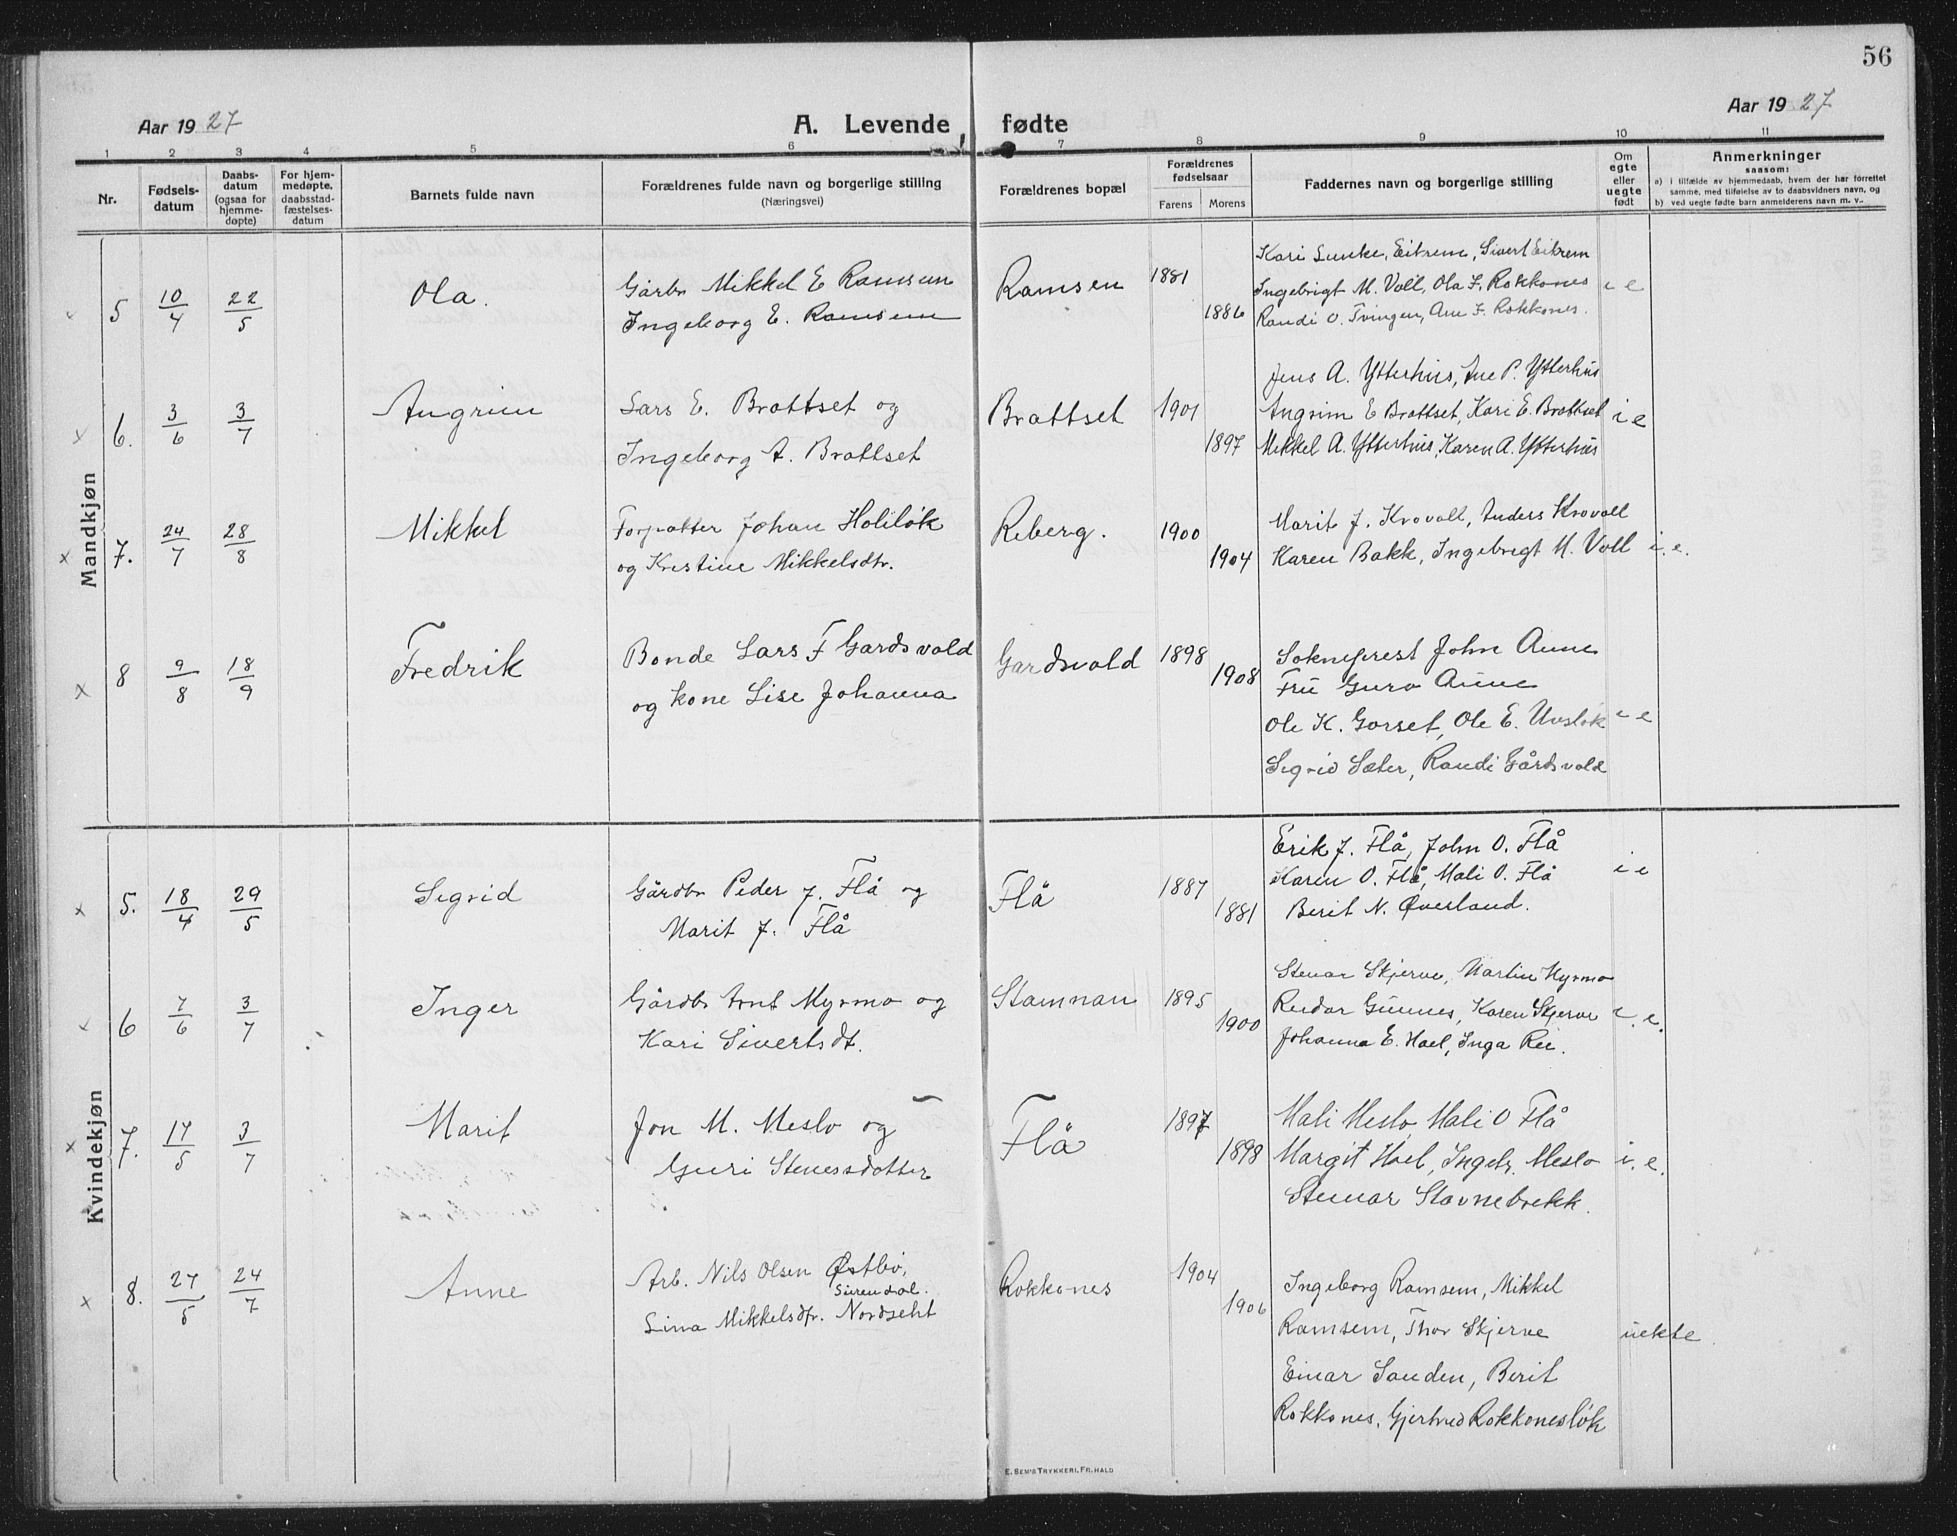 56
Aar 1927
A. Levende fødte
Aar 1927
1 2 3 4 5 6 7 8 9 10 11
Nr.
Fødsels-
datum
Daabs-
datum
(ogsaa for
hjemme-
døpte)
For hjem-
medøpte,
daabsstad-
fæstelses-
datum
Barnets fulde navn
Forældrenes fulde navn og borgerlige stilling
(Næringsvei)
Forældrenes bopæl
Forældrenes
fødselsaar
Farens Morens
Faddernes navn og borgerlige stilling
Om
egte
eller
uegte
født
Anmerkninger
saasom:
a) i tilfælde av hjemmedaab, hvem der har forrettet
samme, med tilføielse av to daabsvidners navn, og
b) ved uegte fødte barn anmelderens navn m. v..
Mandkjøn
5 10/4 22/5 Ola.
Gårbr Mikkel E Ramsem
Ingeborg E. Ramsem
Ramsem 1881 1886
Kari Lunke, Eikrem, Sivert Eikrem
Ingebrigt M. Voll, Ola F. Rokkones
Randi O. Tvingen, Ane F. Rokkones.
i e
x 6. 3/6 3/7 Angrim
Lars E. Brattset og
Ingeborg A. Brattset
Brattset 1901 1897
Jens A. Ytterhus, Ane P. Ytterhus
Angrim E Brattset, Kari E. Brattset
Mikkel A. Ytterhus, Karen A. Ytterhus
i e
x 7. 24/7 28/8 Mikkel
Forpakter Johan Holiløk
og Kristine Mikkelsdtr.
Reberg. 1900 1904
Marit J. Krovoll, Anders Krovoll
Karen Bakk, Ingebrigt M. Voll
i. e.
x 8 9/8 18/9 Fredrik
Bonde Lars F Gardsvold
og kone Lise Johanna
Gardsvold 1898 1908
Sokneprest John Aune
Fru Guro Aune
Ole K. Gorset, Ole E. Uvsløk
Sigrid Sæter, Randi Gårdsvold
i e
Kvindekjøn
x 5. 18/4 29/5 Sigrid
Gårdbr Peder J. Flå og
Marit J. Flå
Flå 1887 1881
Erik J. Flå, John O. Flå
Karen O. Flå, Mali O. Flå
Berit N. Øverland.
i e
x 6 7/6 3/7 Inger
Gårdbr Arnt Myrmo og
Kari Sivertsdt.
Stamnan 1895 1900
Stenar Skjerve, Martin Myrmo
Reidar Gunnes, Karen Skjerve
Johanna E. Hoel, Inga Rie.
i. e.
x 7. 17/5 3/7 Marit
Jon M. Meslo og
Guri Stenersdotter
Flå 1897 1898
Mali Meslo Mali O Flå
Margit Hoel, Ingebr. Meslo
Stenar Stavnebrekk.
i. e.
x 8. 27/5 24/7 Anne
Arb. Nils Olsen Østbø,
Surendal.
Lina Mikkelsdtr. Nordseht
Rokkones 1904 1906
Ingeborg Ramsem, Mikkel
Ramsem, Thor Skjerve
Einar Sanden, Berit
Rokkones, Gjertrud Rokkonesløk
uekte.
E. SEM'S TRYKKERI, FR.HALD